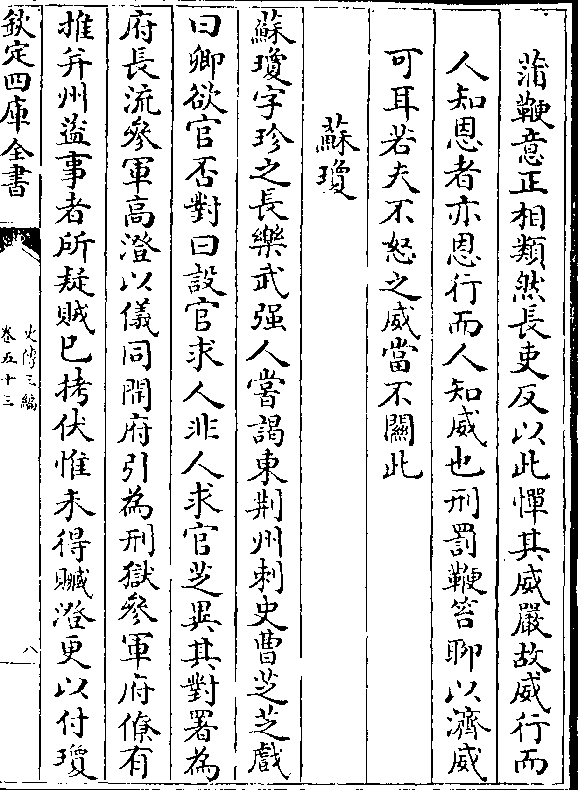 蒲鞭意正相類然長吏反以此憚其威嚴故威行而
人知恩者亦恩行而人知威也刑罰鞭笞聊以濟威
可耳若夫不怒之威當不關此
蘇瓊
蘇瓊字珍之長樂武强人嘗謁東荆州刺史曹芝芝戲
曰卿欲官否對曰設官求人非人求官芝異其對署為
府長流參軍高澄以儀同開府引為刑獄參軍府僚有
推并州盜事者所疑賊已拷伏惟未得贓澄更以付瓊
欽定四庫全書
史傳三編
卷五十三
八